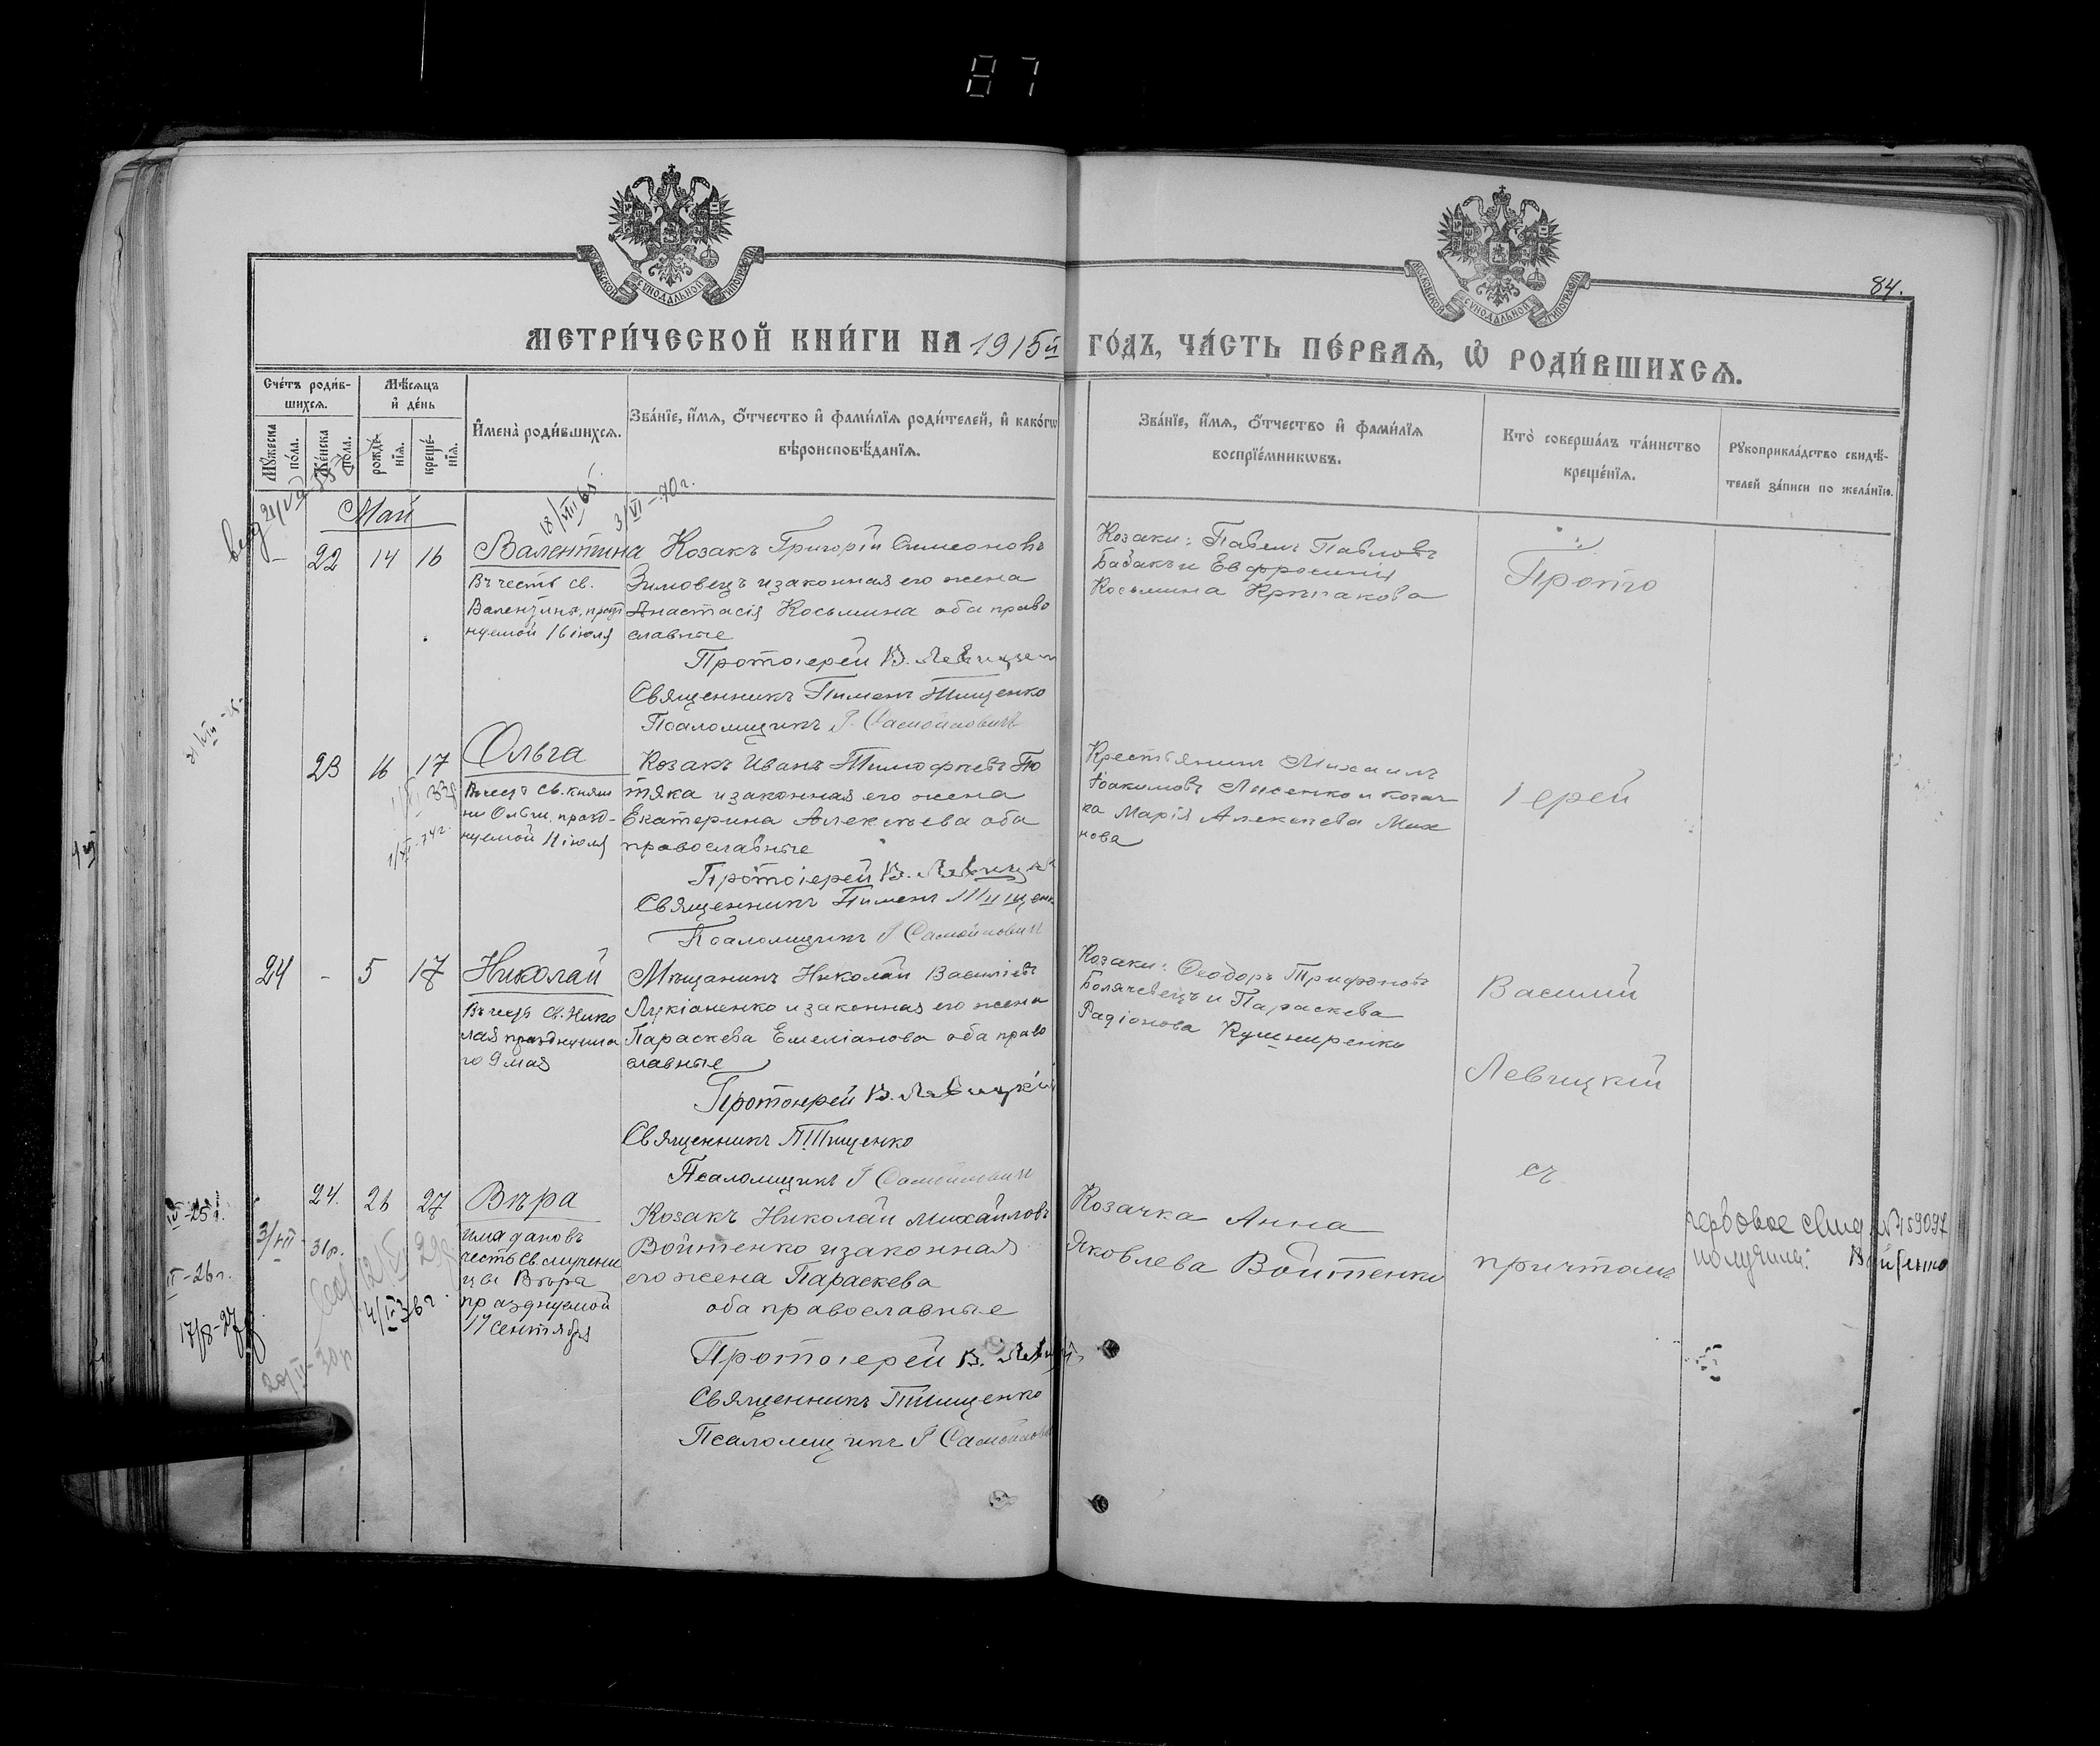 87
МОСКОВСКОЙ СѴНОДАЛЬНОЙ ТИПОГРАФІИ
МОСКОВСКОЙ СѴНОДАЛЬНОЙ ТИПОГРАФІИ
84.
МЕТРИ́ЧЕСКОЙ КНИ́ГИ НА 1915й ГО́ДЪ, ЧА́СТЬ ПЕ́РВАѦ, Ѡ РОДИ́ВШИХСѦ.
Сче́тъ роди́в-
шихсѧ.
Мѣ́сѧцъ
и҆ де́нь
Мꙋ́жеска
по́ла.
Же́нска
по́ла.
рожде́-
нїѧ.
креще́-
нїѧ.
И҆мена̀ роди́вшихсѧ.
Зва́нїе, и҆́мѧ, ѻ҆́тчество и҆ фами́лїѧ роди́телей, и҆ како́гѡ
вѣроисповѣ́данїѧ.
Зва́нїе, и҆́мѧ, ѻ҆́тчество и҆ фами́лїѧ
воспрїе́мникѡвъ.
Кто̀ соверша́лъ та́инство
креще́нїѧ.
Рꙋкоприкла́дство свидѣ́-
телей за́писи по жела́нїю.
Май
18/VIII 65.
3/VI-70 г.
– 22 14 16
Валентина
Въ честь св.
Валентины, празд
нуемой 16 іюля
Козакъ Григорій Симеоновъ
Зимовецъ и законная его жена
Анастасія Косьмина оба право
славные
Протоіерей В. Левицкій
Священникъ Пименъ Тищенко
Псаломщикъ Самойловичъ
Козаки: Павелъ Павловъ
Бабакъ и Евфросинія
Косьмина
Прото
23 16 17
Ольга
Въ честь св. княги
ни Ольги, празд-
нуемой 11 іюля
Козакъ Иванъ Тимофеевъ По
тяка и законная его жена
Екатерина Алексѣева оба
православные
Протоіерей В. Левицкій
Священникъ Пименъ Тищенко
Псаломщикъ Самойловичъ
Крестьянинъ Михаилъ
Іоакимовъ Лисенко и козач
ка Марія Алексѣева Мих
нова
Іерей
24 – 5 17
Николай
Въ честь св. Нико
лая празднуема
го 9 мая
Мѣщанинъ Николай Василіевъ
Лукіаненко и законная его жена
Параскева Емеліанова оба право
славные
Протоіерей В. Левицкій
Священникъ П Тищенко
Псаломщикъ Самойловичъ
Козаки: Ѳеодоръ Трифоновъ
Болячевецъ и Параскева
Радіонова Кушниренко
Василій
Левицкій
съ
24. 26 27
Вѣра
имя дано въ
честь св. мучени
цы Вѣра
празднуемой
17 сентября
Козакъ Николай Михайловъ
Войтенко и законная
его жена Параскева
оба православные
Протоіерей В. Левицкій
Священникъ П Тищенко
Псаломщикъ Самойлович
Козачка Анна
Яковлева Войтенко
причтомъ
получила:
3/VII
31 г.
-26 г.
17/8-27
4/II 36 г.